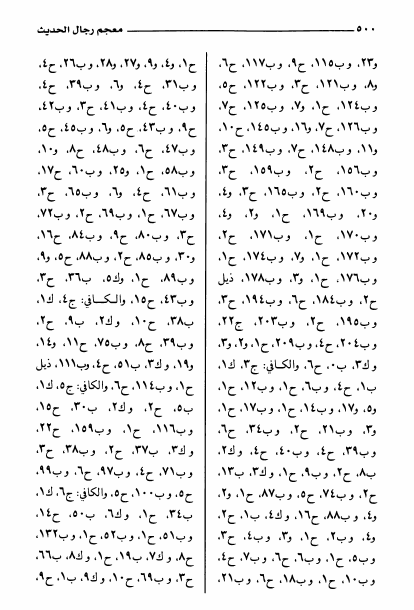 ٥٠٠ معجم رجال الحديث
و٢٣، وب١١٥، ح٩، وب١١٧، ح٦،
و٨، وب١٢١، ح٣، وب١٢٢، ح٥،
وب١٢٤، ح١، و٧، وب١٢٥، ح٧،
وب١٢٦، ح٧، و١٦، وب١٤٥، ح١٠،
و١١، وب١٤٨، ح٧، وب١٤٩، ح٣،
وب١٥٦، ح٢، وب١٥٩، ح٣،
وب١٦٠، ح٢، وب١٦٥، ح٣، و٤،
و٢٠، وب١٦٩، ح١، و٢، و٤،
وب١٧٠، ح١، وب١٧١، ح٢،
وب١٧٢، ح١، و٧، وب١٧٤، ح١،
وب١٧٦، ح١، و٣، وب١٧٨، ذيل
ح٢، وب١٨٤، ح٦، وب١٩٤، ح٣،
وب١٩٥، ح٢، وب٢٠٣، ح٢٢،
وب٢٠٤، ح٤، وب٢٠٩، ح١، و٢، و٣،
وك٣، ب٠، ح٦، والكافي: ج٣، ك١،
ب١، ح٤، وب٦، ح١، وب١٢، ح١،
و٥، و١٧، وب١٤، ح١، وب١٧، ح١،
و٣، وب٢١، ح٢، وب٣٤، ح٦،
وب٣٩، ح٤، وب٤٠، ح٤، وك٢،
ب٨، ح٢، وب٩، ح١، وك٣، ب١٣،
ح٢، وب٧٤، ح٥، وب٨٧، ح١، و٢،
و٤، وب٨٨، ح١٦، وك٤، ب١، ح٢،
و٤، وب٢، ح١، و٣، وب٤، ح٣،
وب٥، ح١، وب٦، ح٦، وب٧، ح٤،
وب١٠، ح١، وب١٨، ح٦، وب٢١،
ح١، و٤، و٩، و٢٧، و٢٨، وب٢٦، ح٤،
وب٣١، ح٤، و٦، وب٣٩، ح٤،
وب٤٠، ح٤، وب٤١، ح٣، وب٤٢،
ح٩، وب٤٣، ح٥، و٦، وب٤٥، ح٥،
وب٤٧، ح٦، وب٤٨، ح٨، و١٠،
وب٥٨، ح١، و٢٥، وب٦٠، ح١٧،
وب٦١، ح٤، و٦، وب٦٥، ح٣،
وب٦٧، ح١، وب٦٩، ح٢، وب٧٢،
ح٣، وب٨٠، ح٩، وب٨٤، ح١٦،
و٣٠، وب٨٥، ح٢، وب٨٨، ح٥، و٩،
وب٨٩، ح١، وك٥، ب٣٦، ح٣،
وب٤٣، ح١٥، والكافي: ج٤، ك١،
ب٣٨، ح١٠، وك٢، ب٩، ح٢،
وب٣٩، ح٨، وب٧٥، ح١١، و١٤،
و١٩، وك٣، ب٥١، ح٤، وب١١١، ذيل
ح١، وب١١٤، ح٦، والكافي: ج٥، ك١،
ب٥، ح٢، وك٢، ب٣٠، ح١٥،
وب١١٦، ح١، وب١٥٩، ح٢٢،
وك٣، ب٣٧، ح٢، وب٣٨، ح٣،
وب٧١، ح٤، وب٩٧، ح٦، وب٩٩،
ح٥، وب١٠٠، ح٥، والكافي: ج٦، ك١،
ب٣٤، ح١، وك٦، ب٥٠، ح١٤،
وب٥١، ح١، وب٥٢، ح١، وب١٣٢،
ح٨، وك٧، ب١٩، ح١، وك٨، ب٦٦،
ح٣، وب٦٩، ح١٠، وك٩، ب١، ح٩،